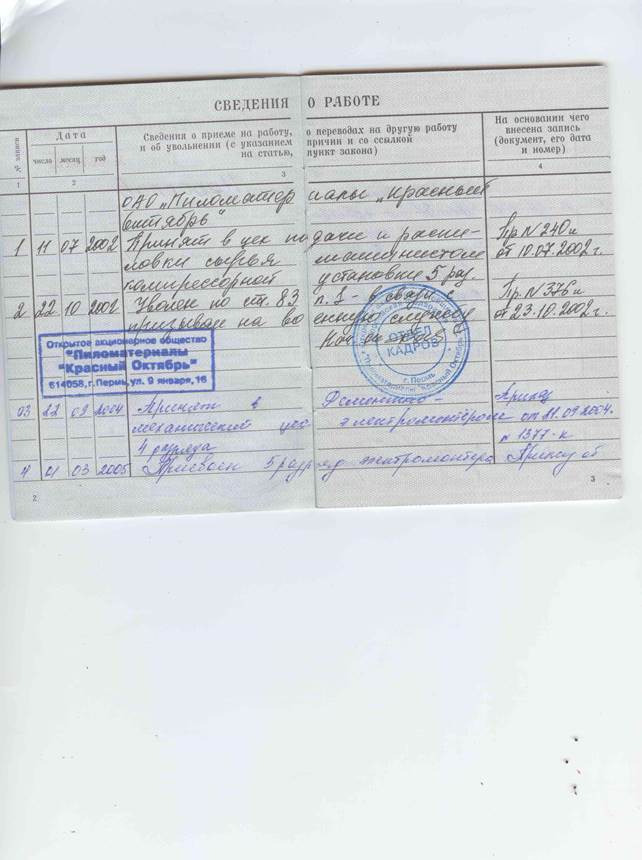 СВЕДЕНИЯ О РАБОТЕ
№ записи
Дата
число месяц год
Сведения о приеме на работу, о переводах на другую работу
и об увольнении (с указанием причин и со ссылкой
на статью, пункт закона)
На основании чего
внесена запись
(документ, его дата
и номер)
1 2 3 4
ОАО "Пиломатериалы "Красный
Октябрь"
1 11 07 2002 Принят в цех подачи и распи- Пр. N 240к
ловки сырья машинистом от 10.07.2002 г.
компрессорной установки 5 раз.
2 22 10 2002 Уволен по ст. 83 п. 1 - в связи с Пр. N 376к
призывом на военную службу от 23.10.2002 г.
Открытое акционерное общество
"Пиломатериалы
"Красный Октябрь"
614058, г. Пермь, ул. 9 января, 16
ОТДЕЛ
КАДРОВ
г. Пермь
03 22 09 2004 Принят в Приказ
механический цех электромонтером от 21.09.2004.
4 разряда N 1377-к
4 01 03 2005 Присвоен 5 разряд электромонтера Приказ от
2 3